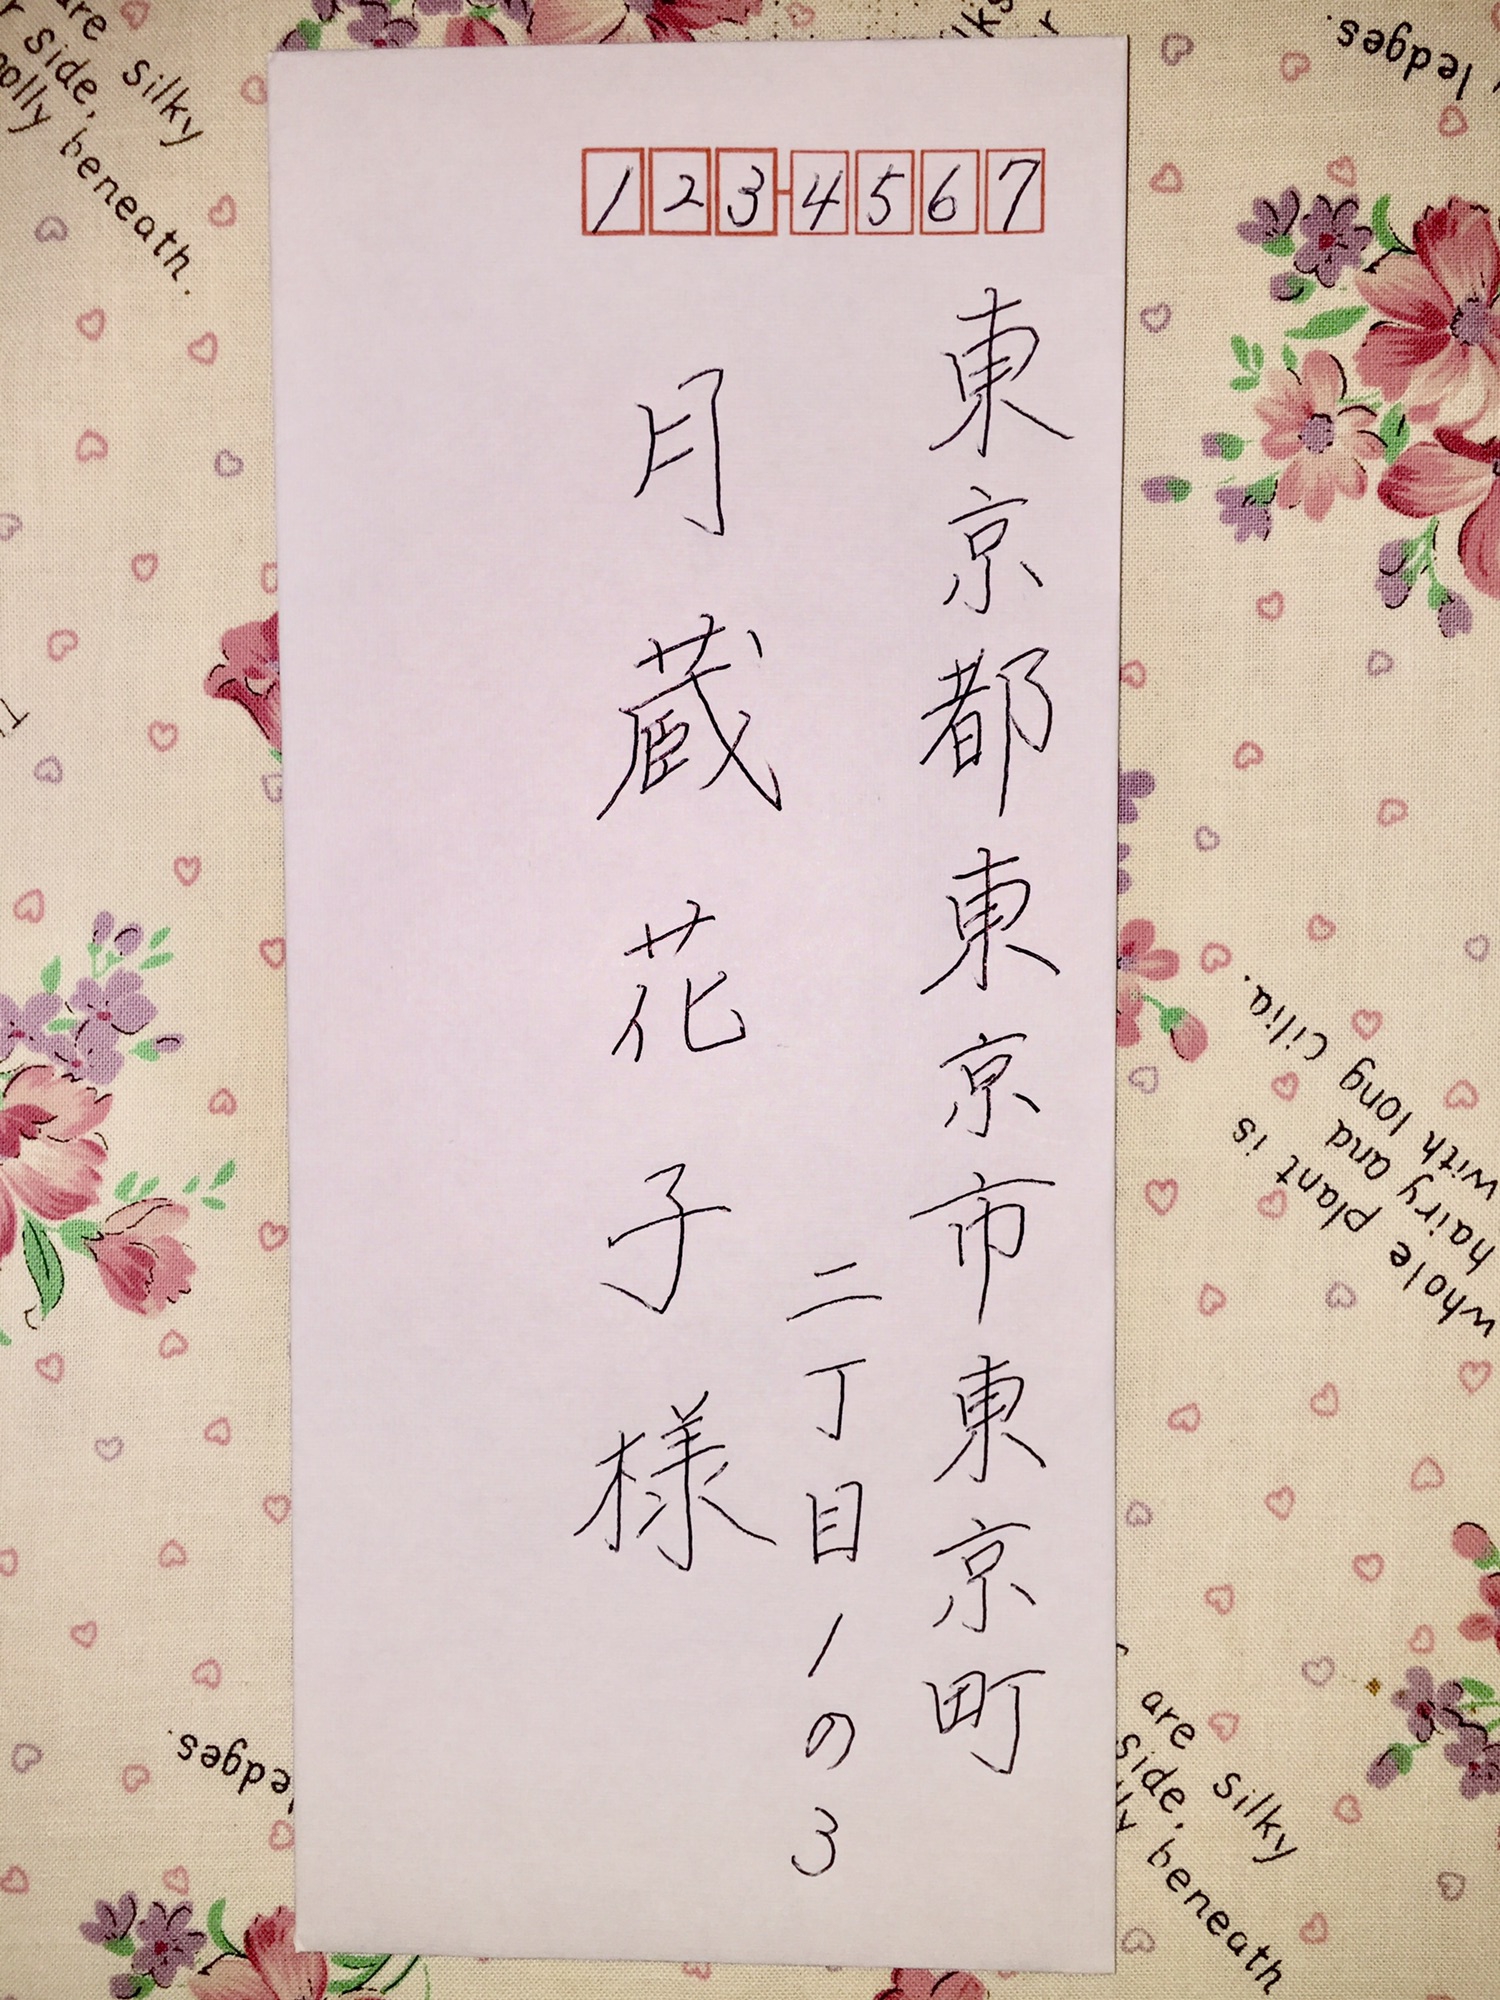 123-4567
東京都東京市東京町
二丁目1の3
月蔵花子様
are silky
side,
olly beneath.
ledges.
whole plant is
hairy and
with long cilia.
ledges.
are silky
side,
lly beneath